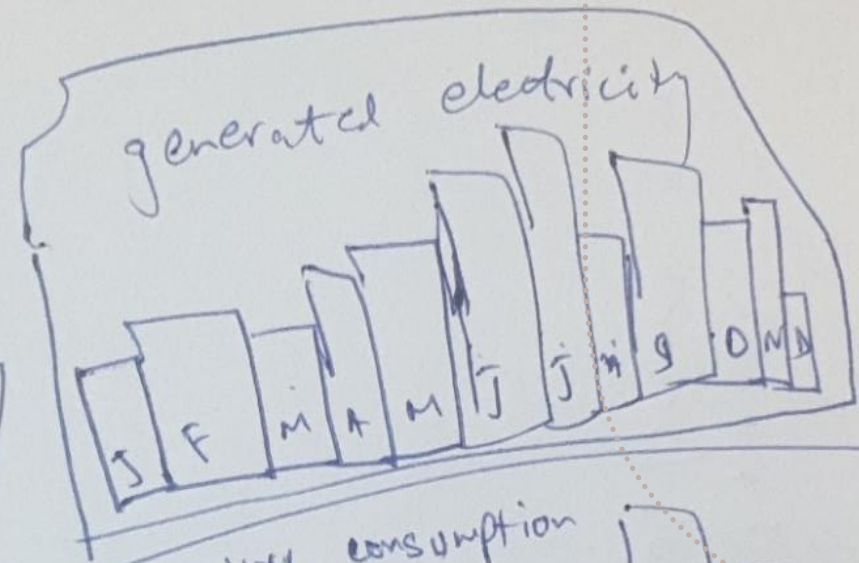 generated electricity
J F M A M J j g O N D
consumption